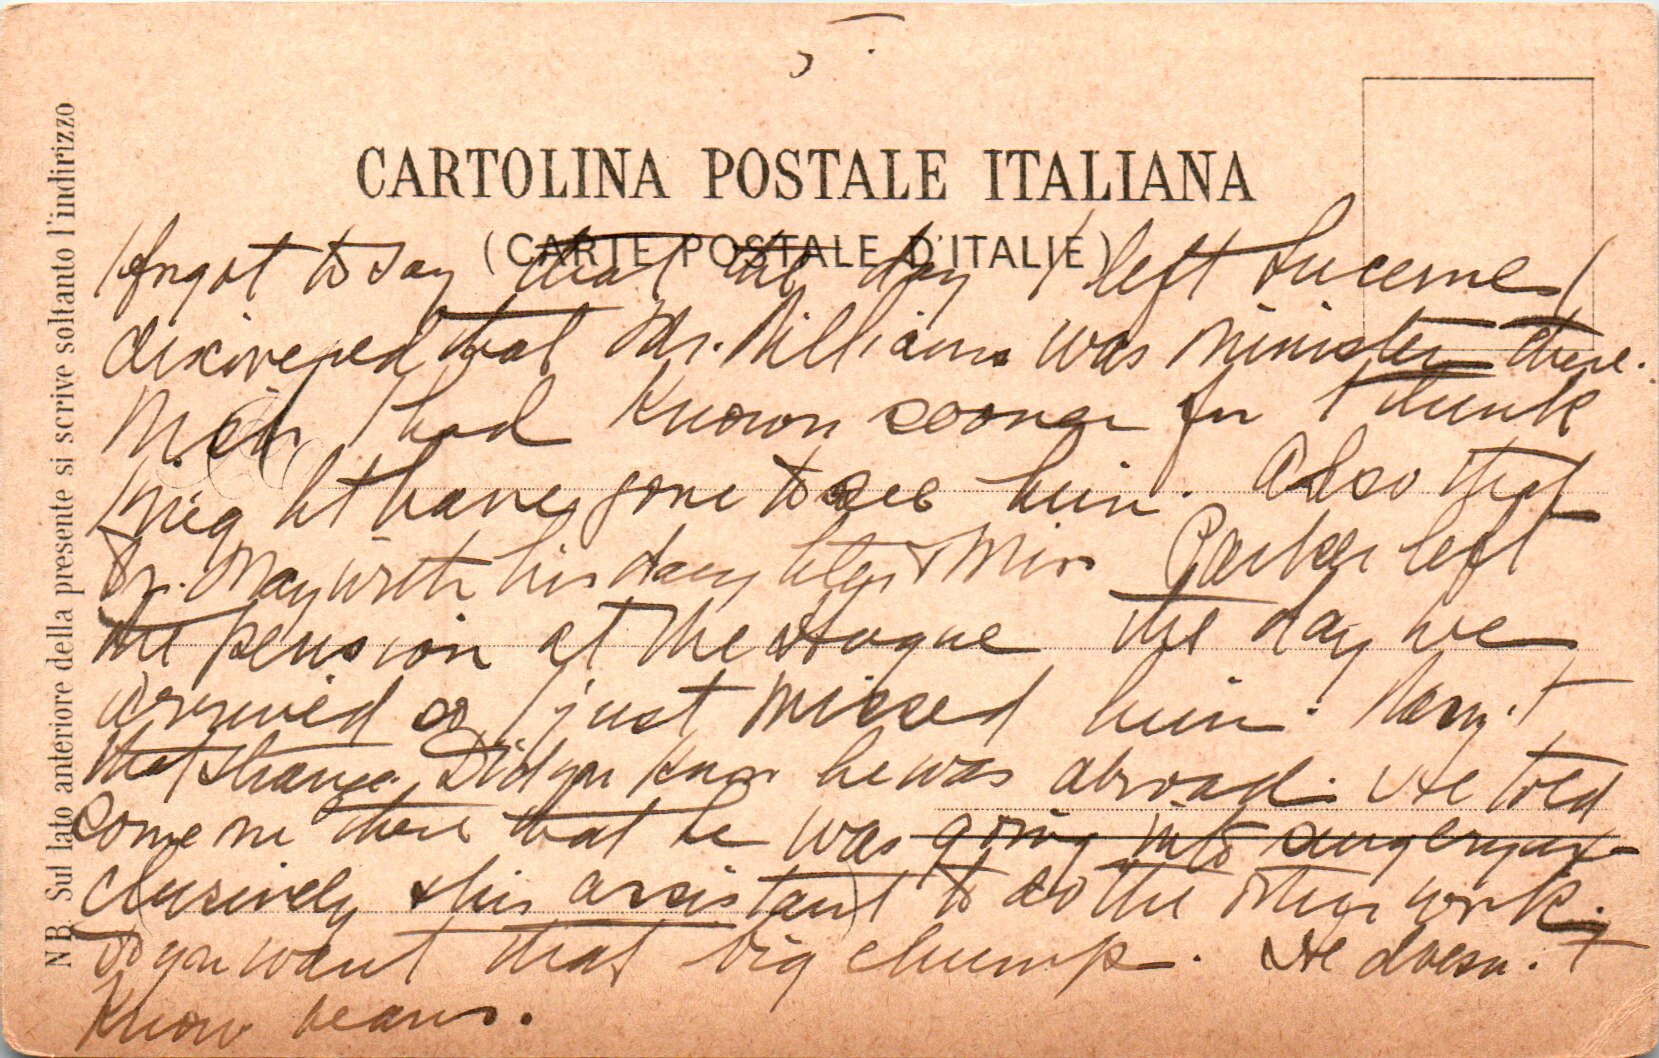 5
CARTOLINA POSTALE ITALIANA
(CARTE POSTALE D'ITALIE)
N B Sul lato anteriore della presente si scrive soltanto l'indirizzo
I forgot to say that the day I left Lucerne I
discovered that Mr. Williams was minister there.
Wish I had known sooner for I think
I might have gone to see him. Also that
Dr. May with his daughter & Miss Parker left
the pension at the Hague the day we
arrived so I just missed him. Wasn't
that strange. Did you know he was abroad. He told
some one there that he was going into surgery ex-
clusively & his assistant to do the other work.
Do you want that big chump. He doesn't
know beans.